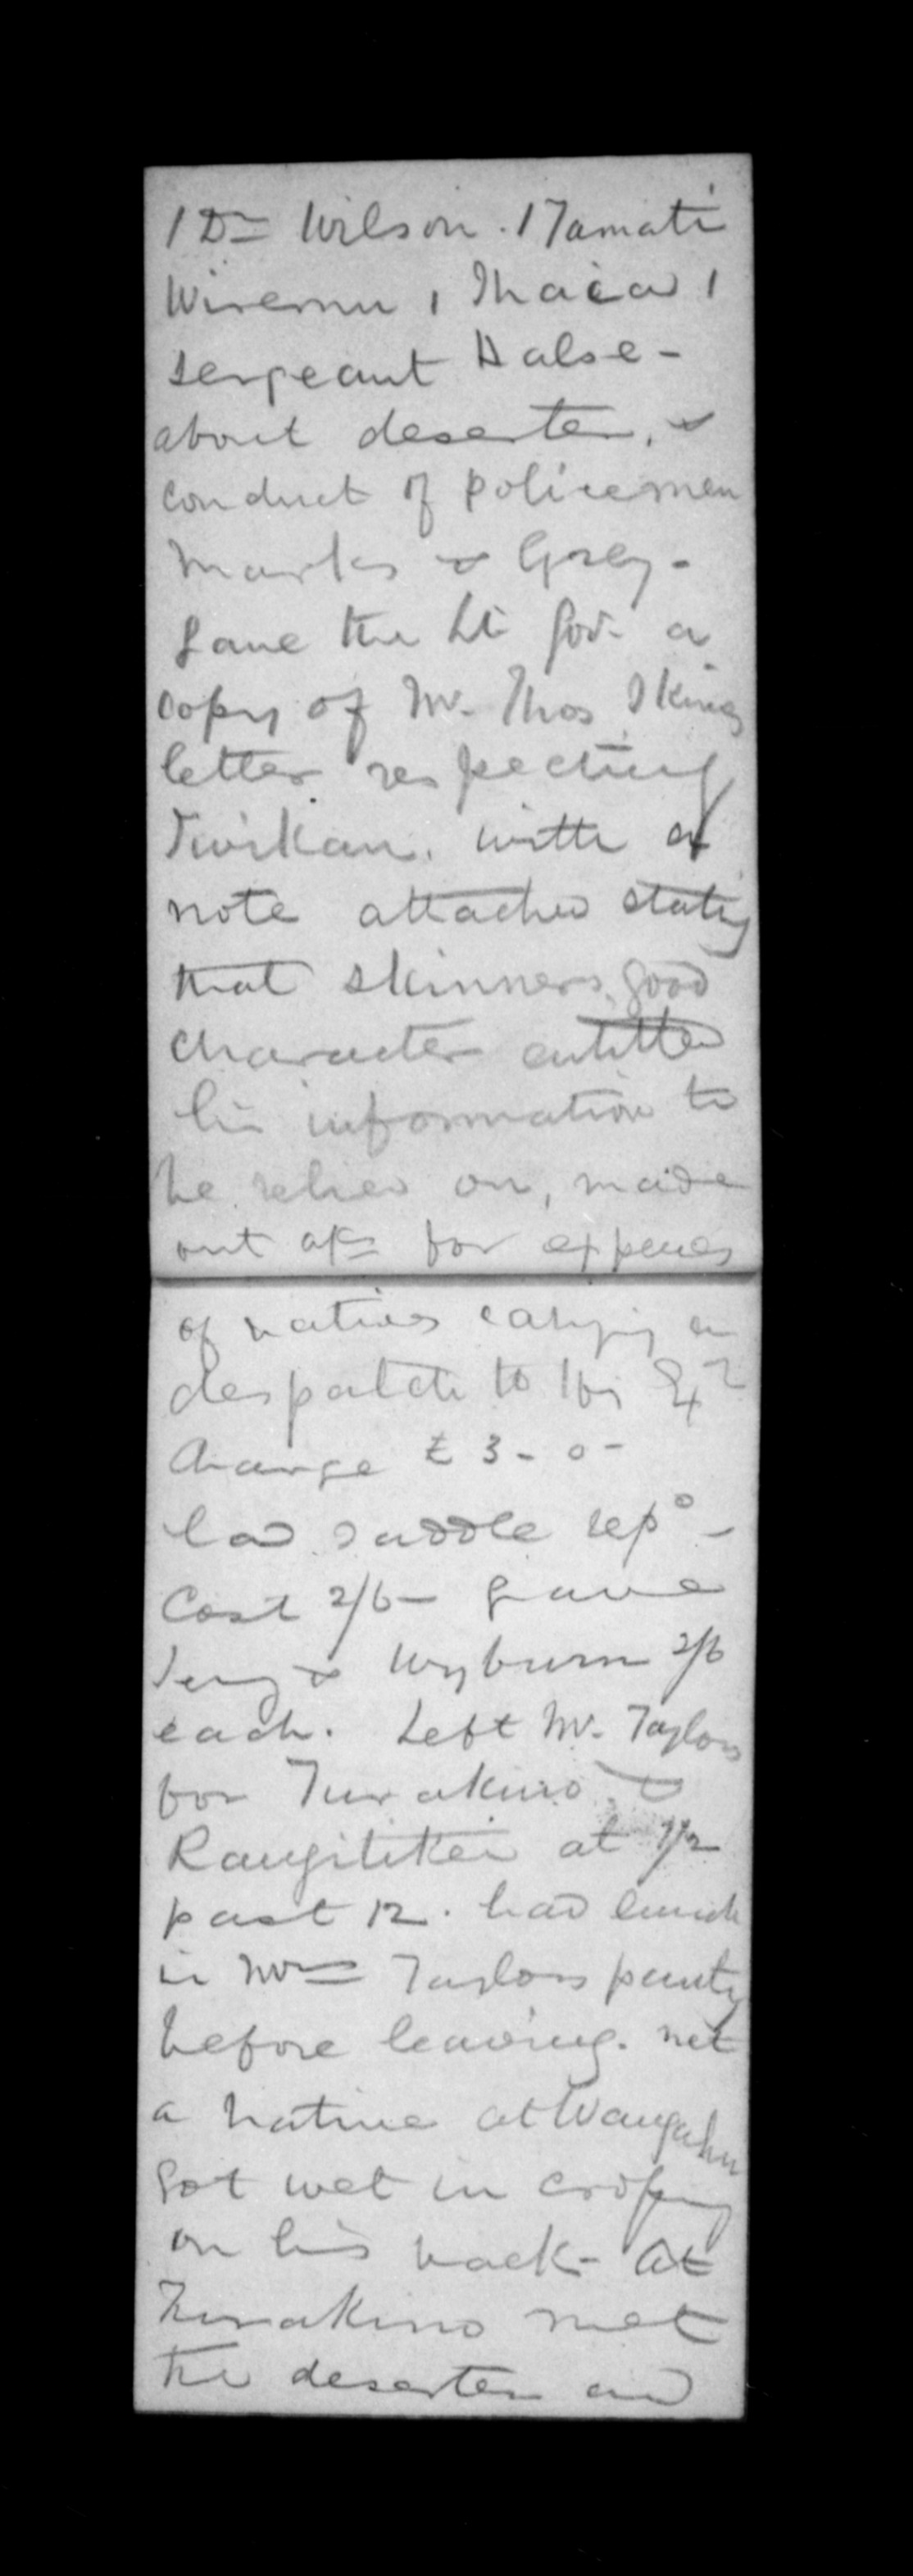 1 Dr Wilson. 1 Tamati
Wiremu, 1 Ihaia 1
Sergeant Halse -
about deserter, &
conduct of policemen
Marks & Grey -
Gave the Lt Gov. a
copy of Mr. Thos Kings
letter respecting
with a
note attached stating
that Skinners good
character entitled
his information to
be relied on, made
out a/c for expences
of natives carrying
despatch to his Ex
charge £3-0-
had saddle repd -
Cost 2/6 - gave
& Wyburn 2/6
each. Left Mr. Taylors
for Turakino &
Rangitikei at 1/2
past 12. had lunch
in Mrs Taylors pantry
before leaving. met
a native at Wangahu
got wet in crossing
on his back - At
Turakino met
the deserter and